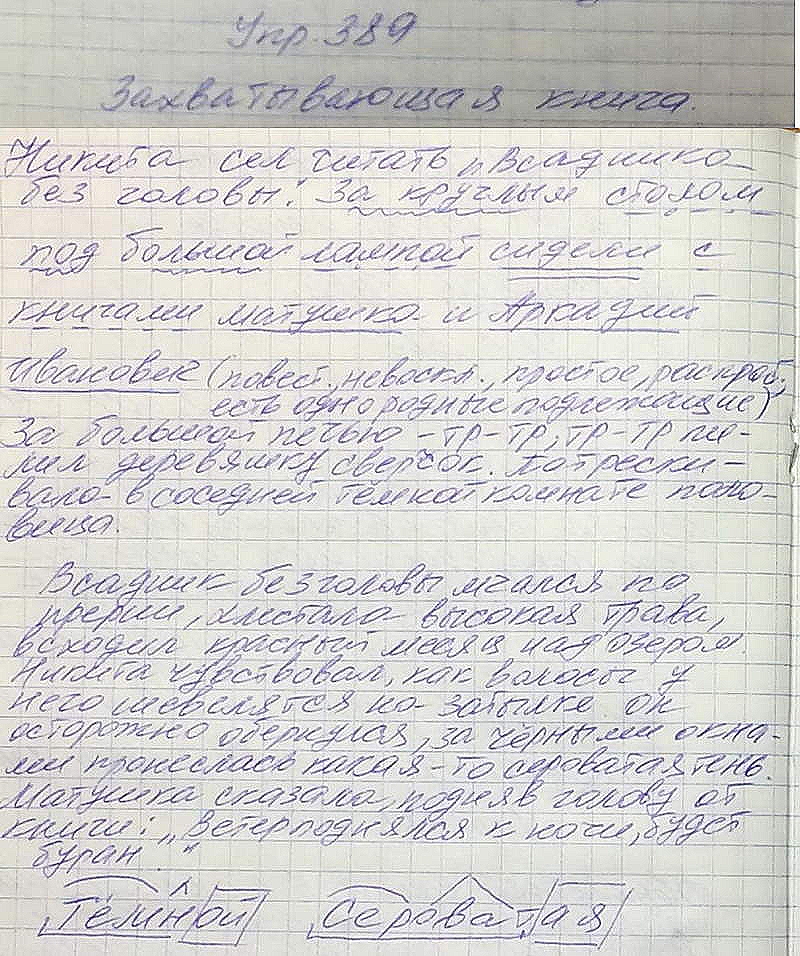 Упр. 389
Захватывающая книга.
Никита сел читать „Всадника
без головы". За круглым столом
под большой лампой сидели с
книгами матушка и Аркадий
Иванович (повест., невоскл., простое, распрост.,
есть однородные подлежащие)
За большой печью -тр-тр, тр-тр пи-
лил деревяшку сверчок. Потрески-
вала в соседней тёмной комнате поло-
вица.
Всадник без головы мчался по
прерии, хлестала высокая трава,
всходил красный месяц над озером.
Никита чувствовал, как волосы у
него шевелятся на затылке. Он
осторожно обернулся, за чёрными окна-
ми пронеслась какая-то сероватая тень.
Матушка сказала, подняв голову от
книги: „Ветер поднялся к ночи, будет
буран."
Тёмной Сероватая